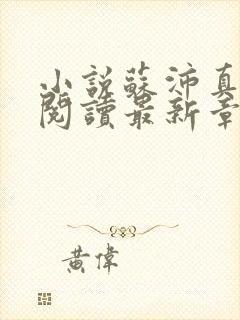 小説蘇沛真
閱讀最新章
黃偉